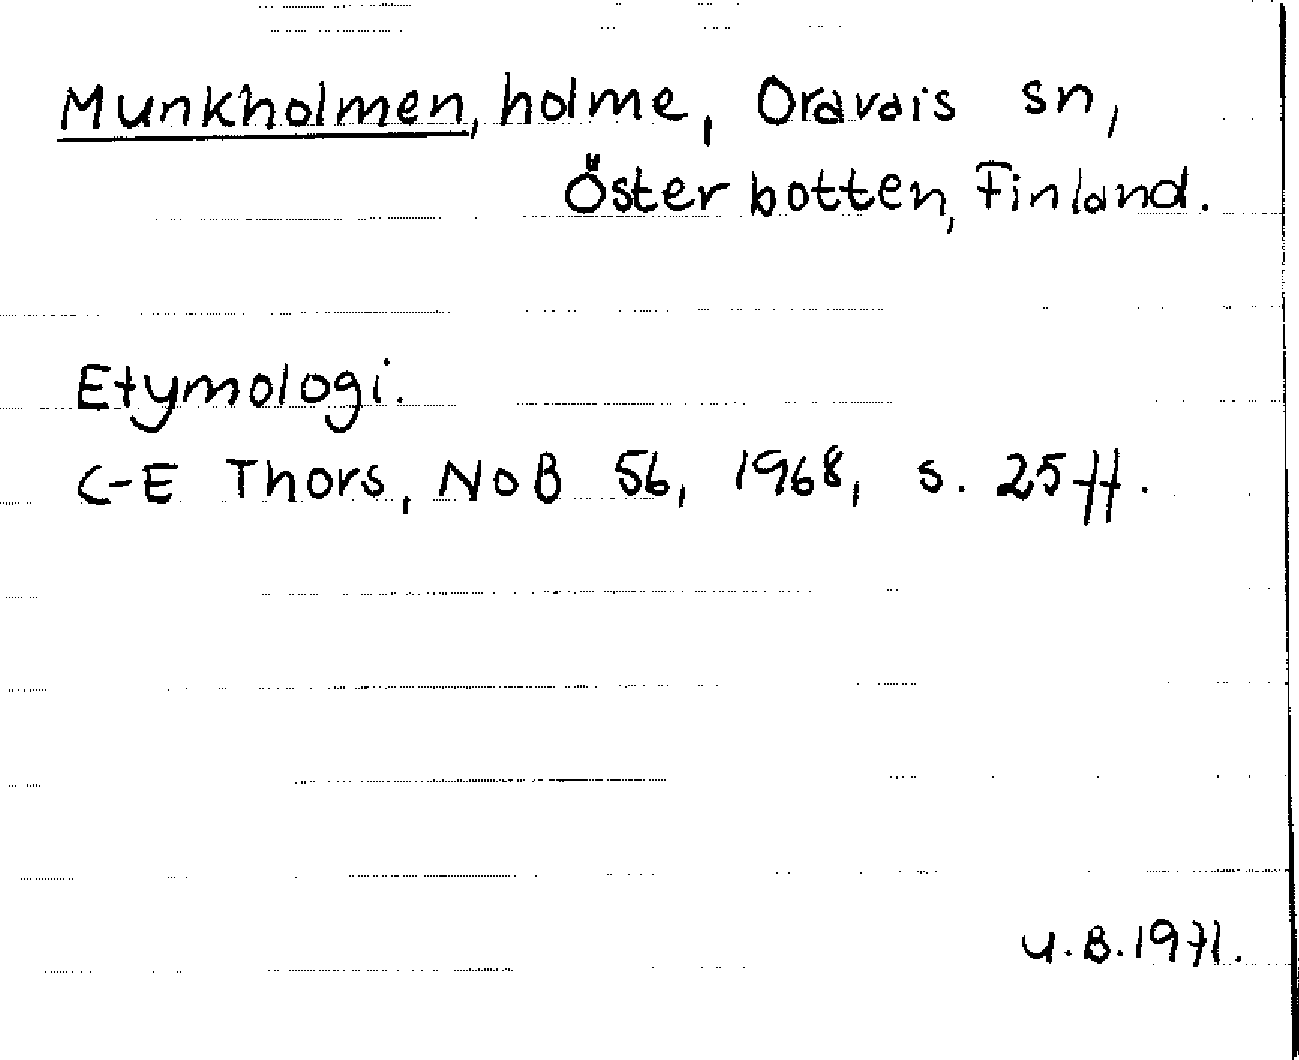 Munkholmen, holme, Oravais sn,
Österbotten, Finland.
Etymologi.
C-E Thors, NoB 56, 1968, s. 25 ff.
U.B. 1971.